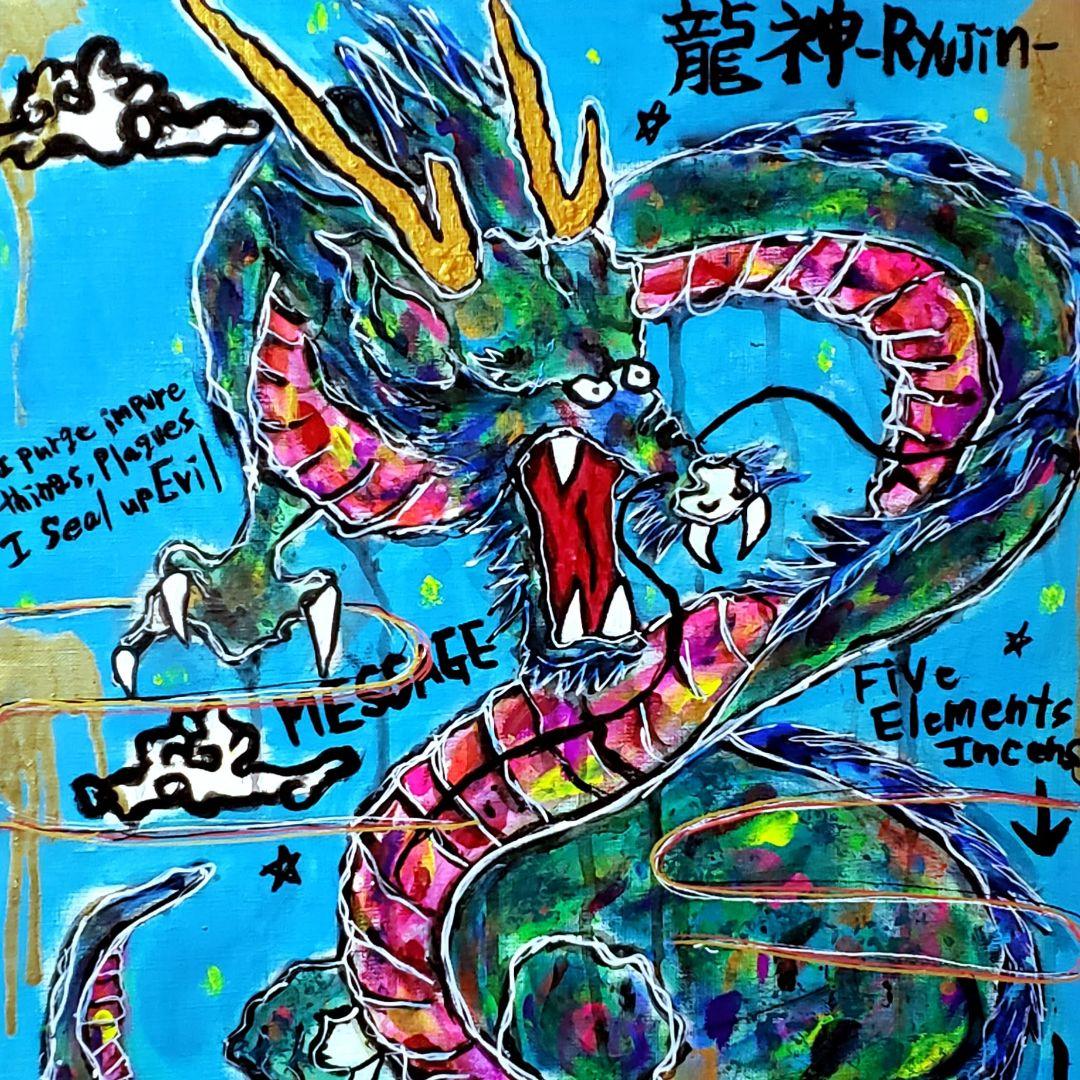 龍神-RyuJin-
I purge impure
things, Plagues
I Seal up Evil
MESSAGE
Five
Elements
Incens